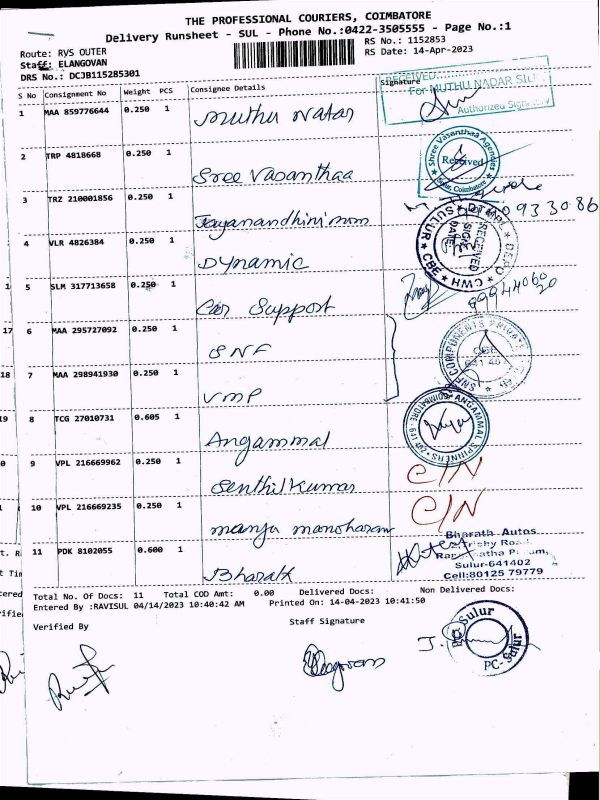 THE PROFESSIONAL COURIERS, COIMBATORE
Delivery Runsheet - SUL - Phone No.:0422-3505555 - Page No.:1
Route: RVS OUTER
RS No.: 1152853
Staff: ELANGOVAN
RS Date: 14-Apr-2023
DRS No.: DCJB115285301
S No Consignment No Weight PCS Consignee Details Signature
1 MAA 859776644 0.250 1 Muthu Nadar
RECEIVED
For MUTHU NADAR
Authorized Signatory
2 TRP 4818668 0.250 1 Sree Vasanthaa
Shree Vasanthaa Agencies
Received
Sulur, Coimbatore
3 TRZ 210001856 0.250 1 Jayanandhini mom
933086
4 VLR 4826384 0.250 1 Dynamic
DEPO
RECEIVED
SIGN
DATE
SULUR ★ CBE ★ CWH
5 SLM 317713658 0.250 1 Car Support
9994406020
6 MAA 295727092 0.250 1 SNF
SNF COMPONENTS PRIVATE
7 MAA 298941930 0.250 1 VMP
8 TCG 27010731 0.605 1 Angammal
ANGAMMAL SPINNERS
COIMBATORE
9 VPL 216669962 0.250 1 Senthilkumar C/N
10 VPL 216669235 0.250 1 manju manoharan C/N
11 PDK 8102055 0.600 1 Bharath
Bharath Autos
Trichy Road
Sulur-641402
Cell:80125 79779
Total No. Of Docs: 11 Total COD Amt: 0.00 Delivered Docs: Non Delivered Docs:
Entered By :RAVISUL 04/14/2023 10:40:42 AM Printed On: 14-04-2023 10:41:50
Verified By
Staff Signature
Sulur
PC-Sulur
17
18
19